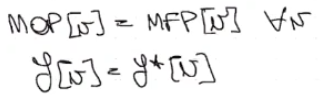 MOP[v] = MFP[v] ∀v
y[v] = y*[v]